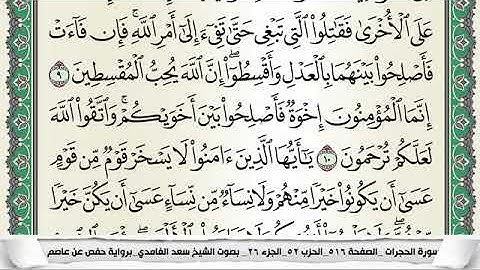 عَلَى ٱلْأُخْرَىٰ فَقَٰتِلُوا۟ ٱلَّتِى تَبْغِى حَتَّىٰ تَفِىٓءَ إِلَىٰٓ أَمْرِ ٱللَّهِ ۚ فَإِن فَآءَتْ
فَأَصْلِحُوا۟ بَيْنَهُمَا بِٱلْعَدْلِ وَأَقْسِطُوٓا۟ ۖ إِنَّ ٱللَّهَ يُحِبُّ ٱلْمُقْسِطِينَ ٩
إِنَّمَا ٱلْمُؤْمِنُونَ إِخْوَةٌ فَأَصْلِحُوا۟ بَيْنَ أَخَوَيْكُمْ ۚ وَٱتَّقُوا۟ ٱللَّهَ
لَعَلَّكُمْ تُرْحَمُونَ ١٠ يَٰٓأَيُّهَا ٱلَّذِينَ ءَامَنُوا۟ لَا يَسْخَرْ قَوْمٌ مِّن قَوْمٍ
عَسَىٰٓ أَن يَكُونُوا۟ خَيْرًا مِّنْهُمْ وَلَا نِسَآءٌ مِّن نِّسَآءٍ عَسَىٰٓ أَن يَكُنَّ خَيْرًا
سورة الحجرات _ الصفحة ٥١٦_ الحزب ٥٢_ الجزء ٢٦_ بصوت الشيخ سعد الغامدي_ برواية حفص عن عاصم